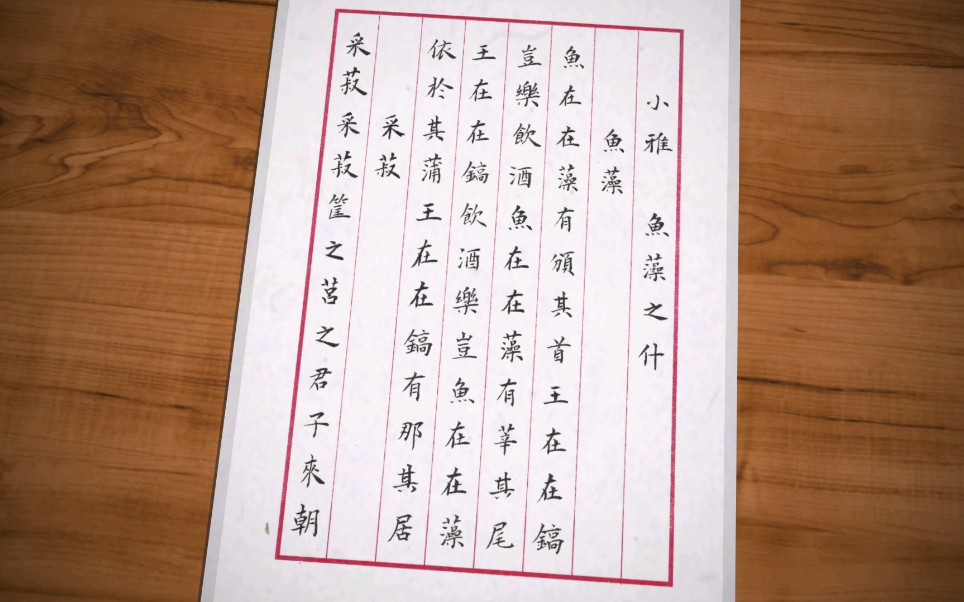 小雅 魚藻之什
魚藻
魚在在藻有頒其首王在在鎬
豈樂飲酒魚在在藻有莘其尾
王在在鎬飲酒樂豈魚在在藻
依於其蒲王在在鎬有那其居
采菽
采菽采菽筐之莒之君子來朝